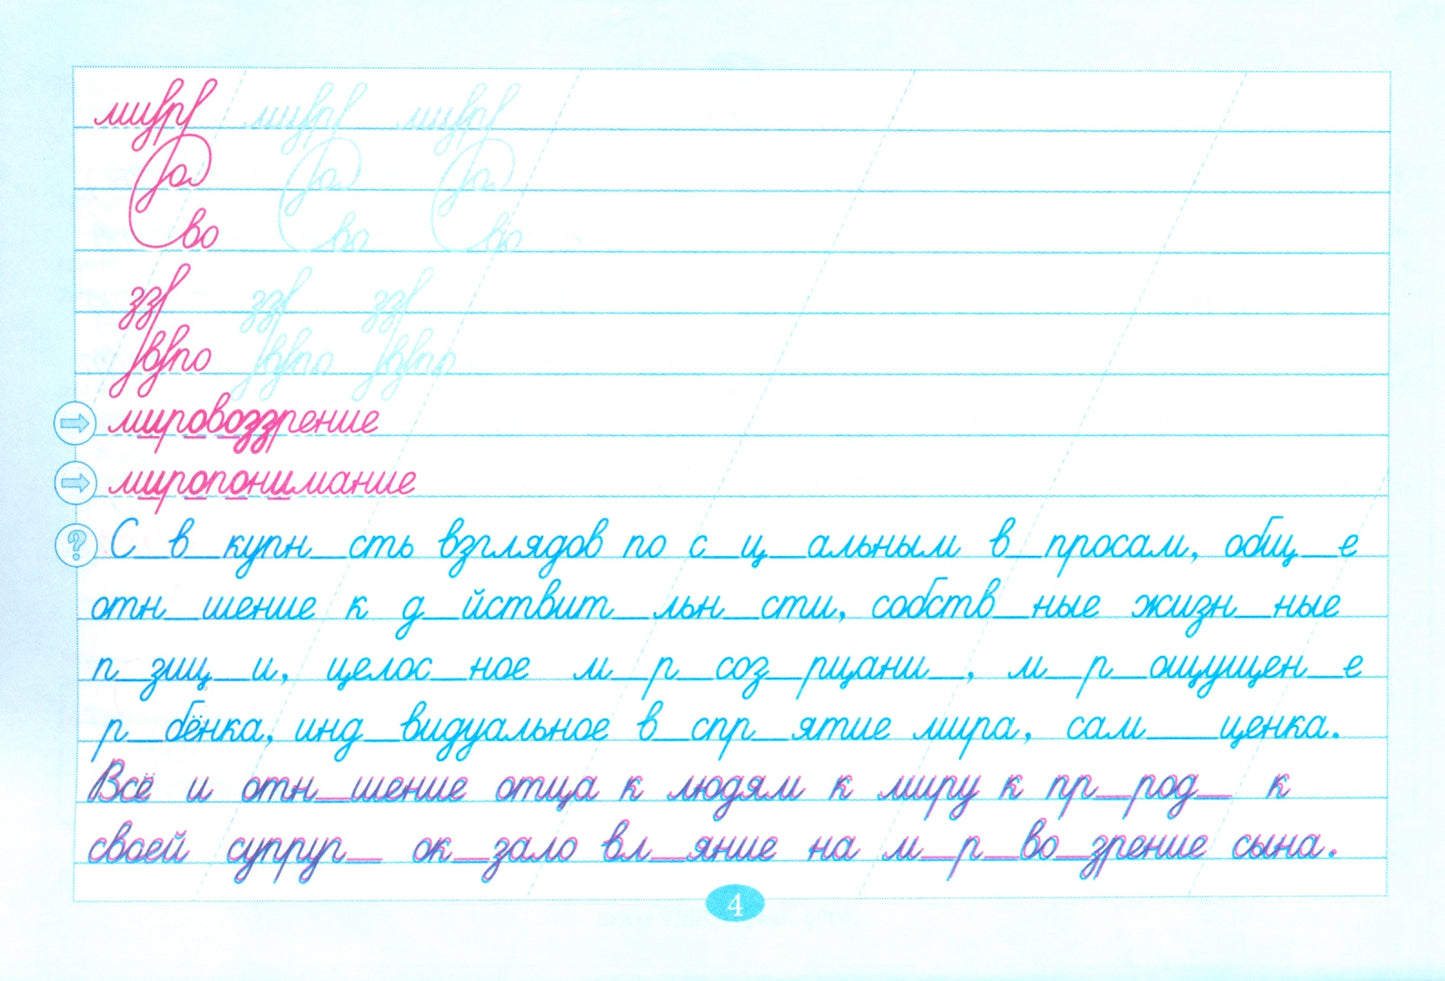 мировоззрение
миропонимание
С_в_купн_сть взглядов по с_ц_альным в_просам, общ_е
отн_шение к д_йствит_льн_сти, собств_ные жизн_ные
п_зиц_и, целос_ное м_р_соз_рцани_, м_р_ощущен_е
р_бёнка, инд_видуальное в_спр_ятие мира, сам__ценка.
Всё и отн_шение отца к людям к миру к пр_род_ к
своей супруг_ ок_зало вл_яние на м_р_во_зрение сына.
4